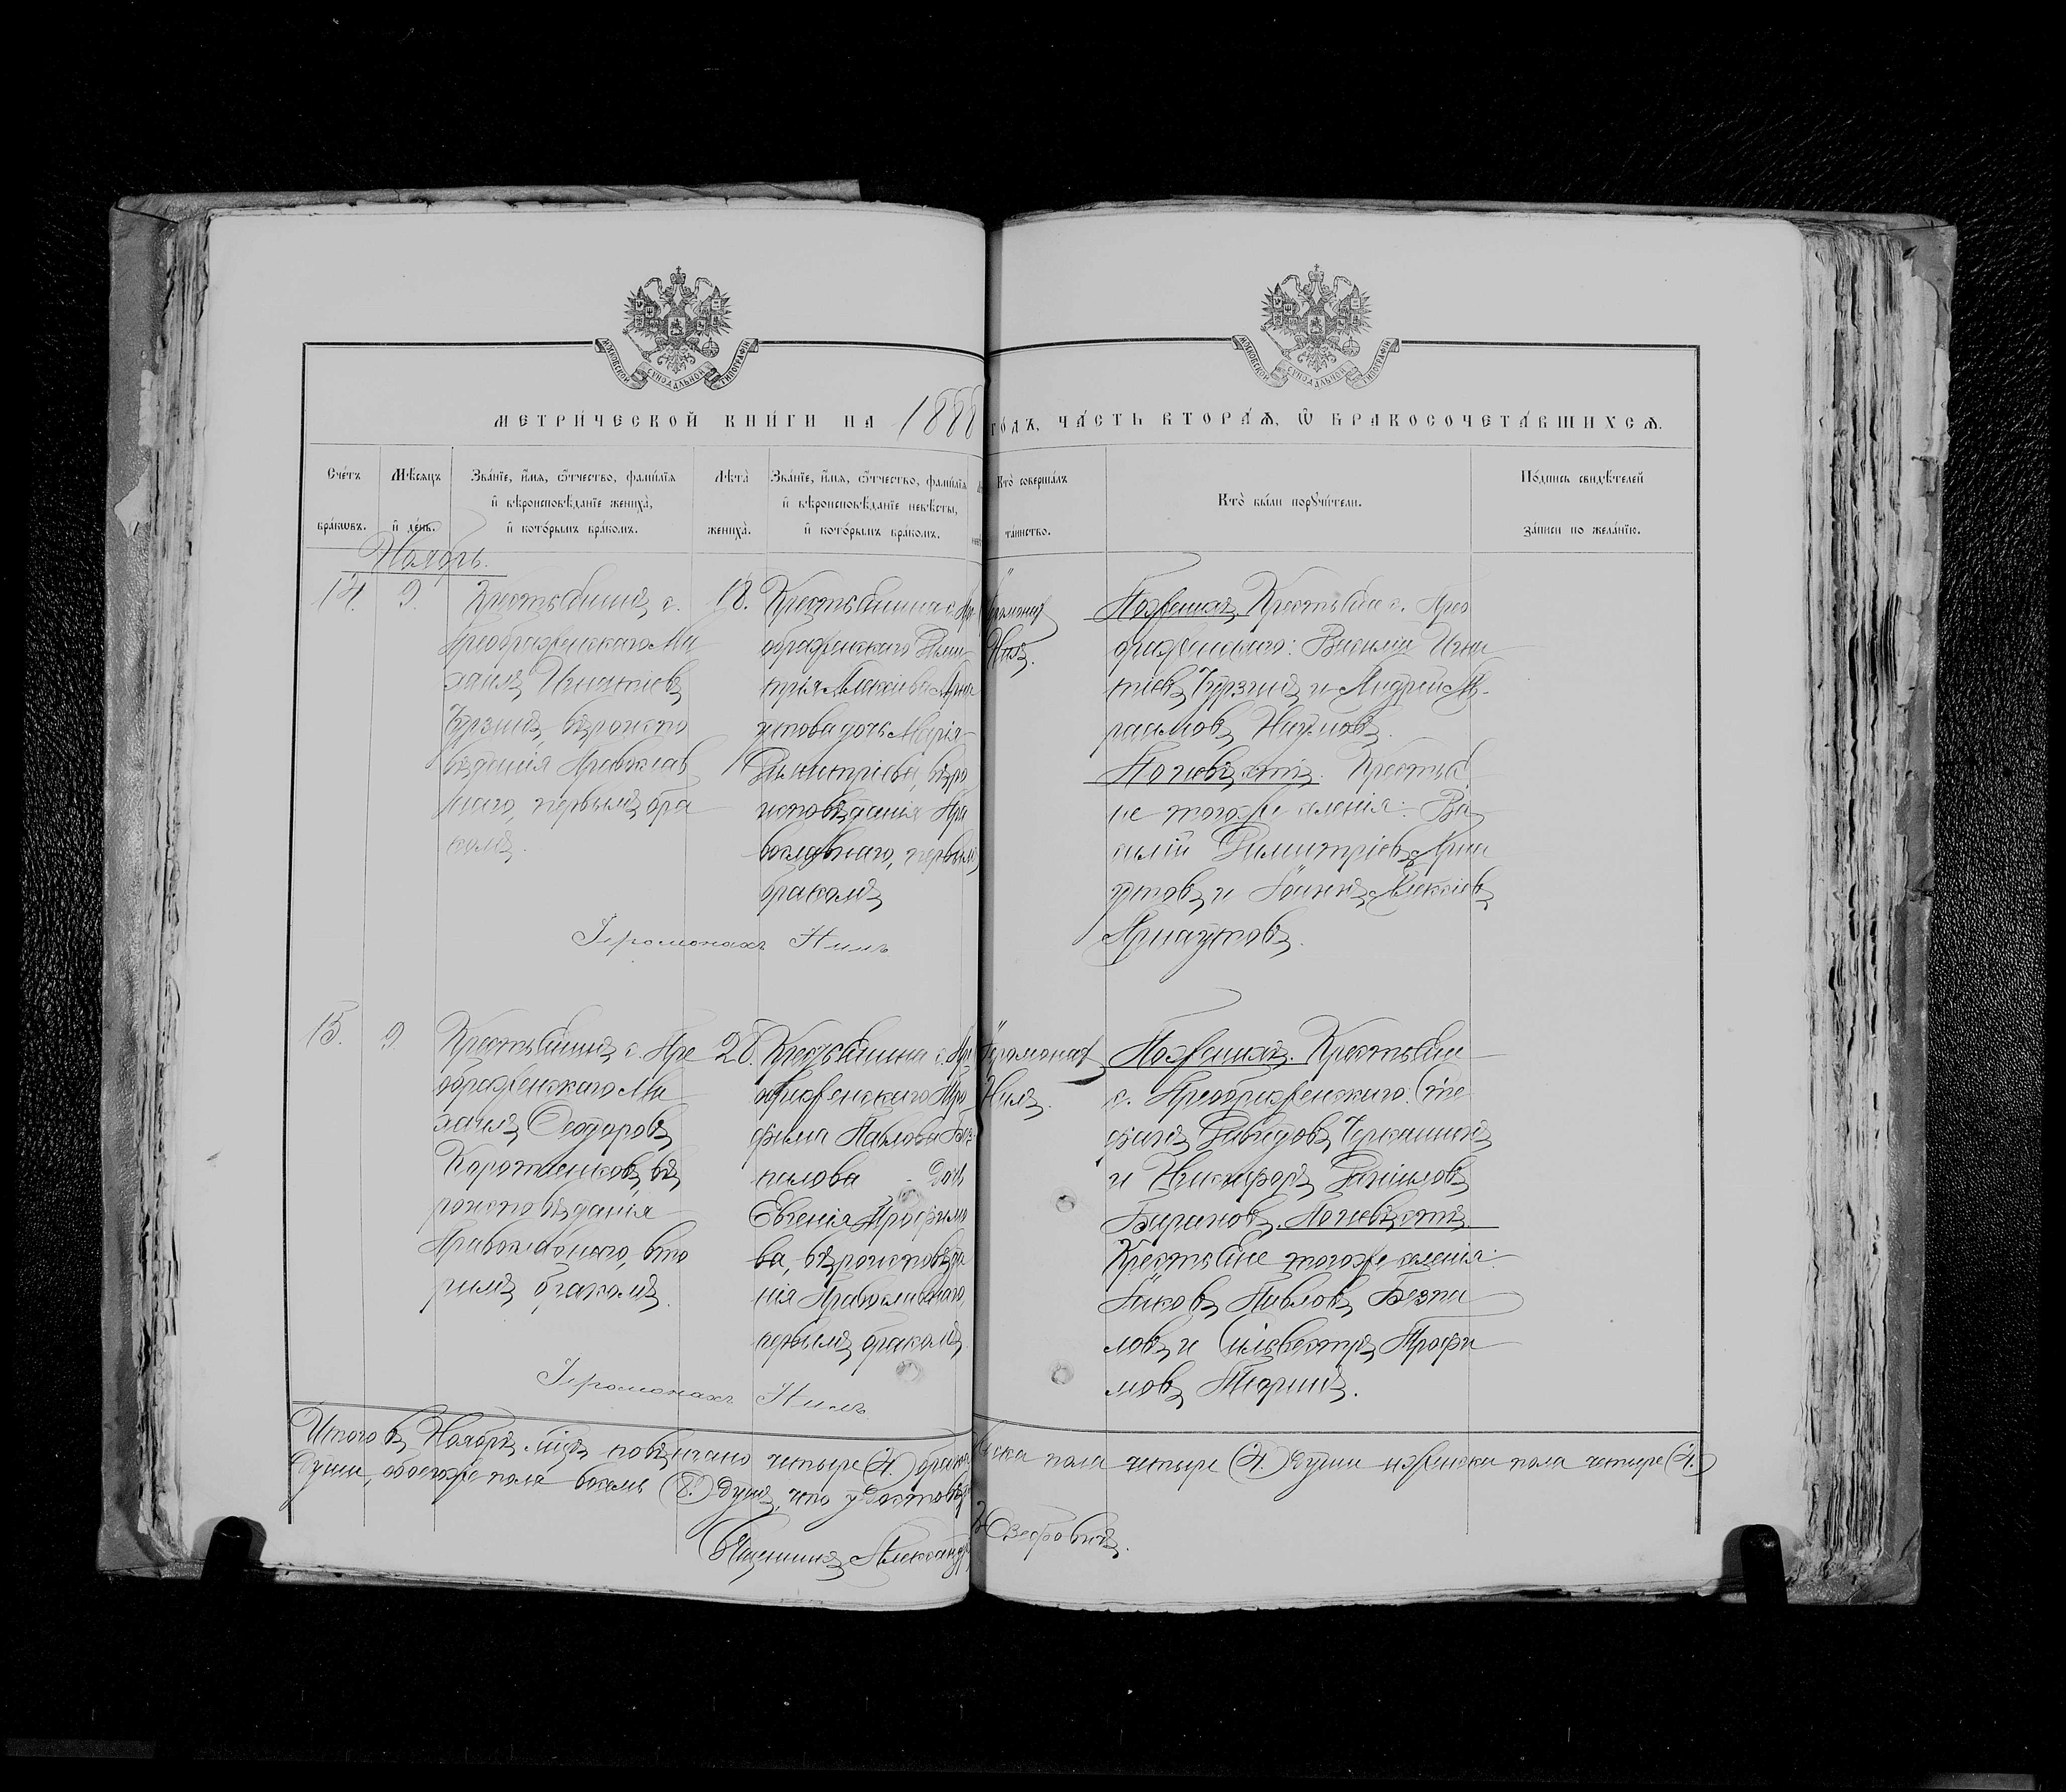 МОСКОВСКОЙ СѴНОДАЛЬНОЙ ТИПОГРАФІИ
МОСКОВСКОЙ СѴНОДАЛЬНОЙ ТИПОГРАФІИ
МЕТРИ́ЧЕСКОЙ КНИ́ГИ НА 1888 ГО́ДЪ, ЧА́СТЬ ВТОРА́Ѧ, Ѽ БРАКОСОЧЕТА́ВШИХСѦ.
Сче́тъ бра́кѡвъ.
Мѣ́сѧцъ и҆ де́нь.
Зва́нїе, и҆́мѧ, ѻ҆́тчество, фами́лїѧ
и҆ вѣроисповѣ́данїе жениха̀,
и҆ кото́рымъ бра́комъ.
Лѣ́та жениха̀.
Зва́нїе, и҆́мѧ, ѻ҆́тчество, фами́лїѧ
и҆ вѣроисповѣ́данїе невѣ́сты,
и҆ кото́рымъ бра́комъ.
Кто̀ соверша́лъ
та́инство.
Кто̀ бы́ли порꙋчи́тели.
По́дпись свидѣ́телей
за́писи по жела́нїю.
Ноябрь.
14. 9.
Крестьянинъ с.
Преображенскаго Ми
хаилъ Игнатіевъ
вѣроиспо
вѣданія Православ
наго, первымъ бра
комъ.
18.
Крестьянина с. Пре
ображенскаго Дими
трія Арна
утова дочь Марія
Димитріева, вѣро
исповѣданія Пра
вославнаго, первымъ
бракомъ
Іеромонахъ
Нилъ.
По женихѣ Крестьяне с. Прео
браженскаго: Василій Игна
тіевъ и Андрей
Наумовъ.
По невѣстѣ. Крестья
не тогоже селенія: Ва
силій Димитріевъ Арна
утовъ и Іоаннъ Алексіевъ
Арнаутовъ.
Іеромонахъ Нилъ
15. 9.
Крестьянинъ с. Пре
ображенскаго Ми
хаилъ Ѳеодоровъ
вѣ
роисповѣданія
Православнаго, вто
рымъ бракомъ.
28.
Крестьянина с. Пре
ображенскаго Тро
фима Павлова Без
палова дочь
Евгенія Трофимо
ва, вѣроисповѣда
нія Православнаго,
первымъ бракомъ.
Іеромонахъ
Нилъ.
По женихѣ. Крестьяне
с. Преображенскаго: Сте
фанъ Давидовъ
и Никифоръ Даніиловъ
Барановъ. По невѣстѣ
Крестьяне тогоже селенія:
Іаковъ Павловъ Безпа
ловъ и Сильвестръ Трофи
мовъ
Іеромонахъ Нилъ
Итого въ Ноябрѣ м-цѣ повѣнчано четыре (4.) брака мужска пола четыре (4.) души и женска пола четыре (4.)
души, обоегоже пола восемь (8.) душъ, что удостовѣр
Священникъ Александръ